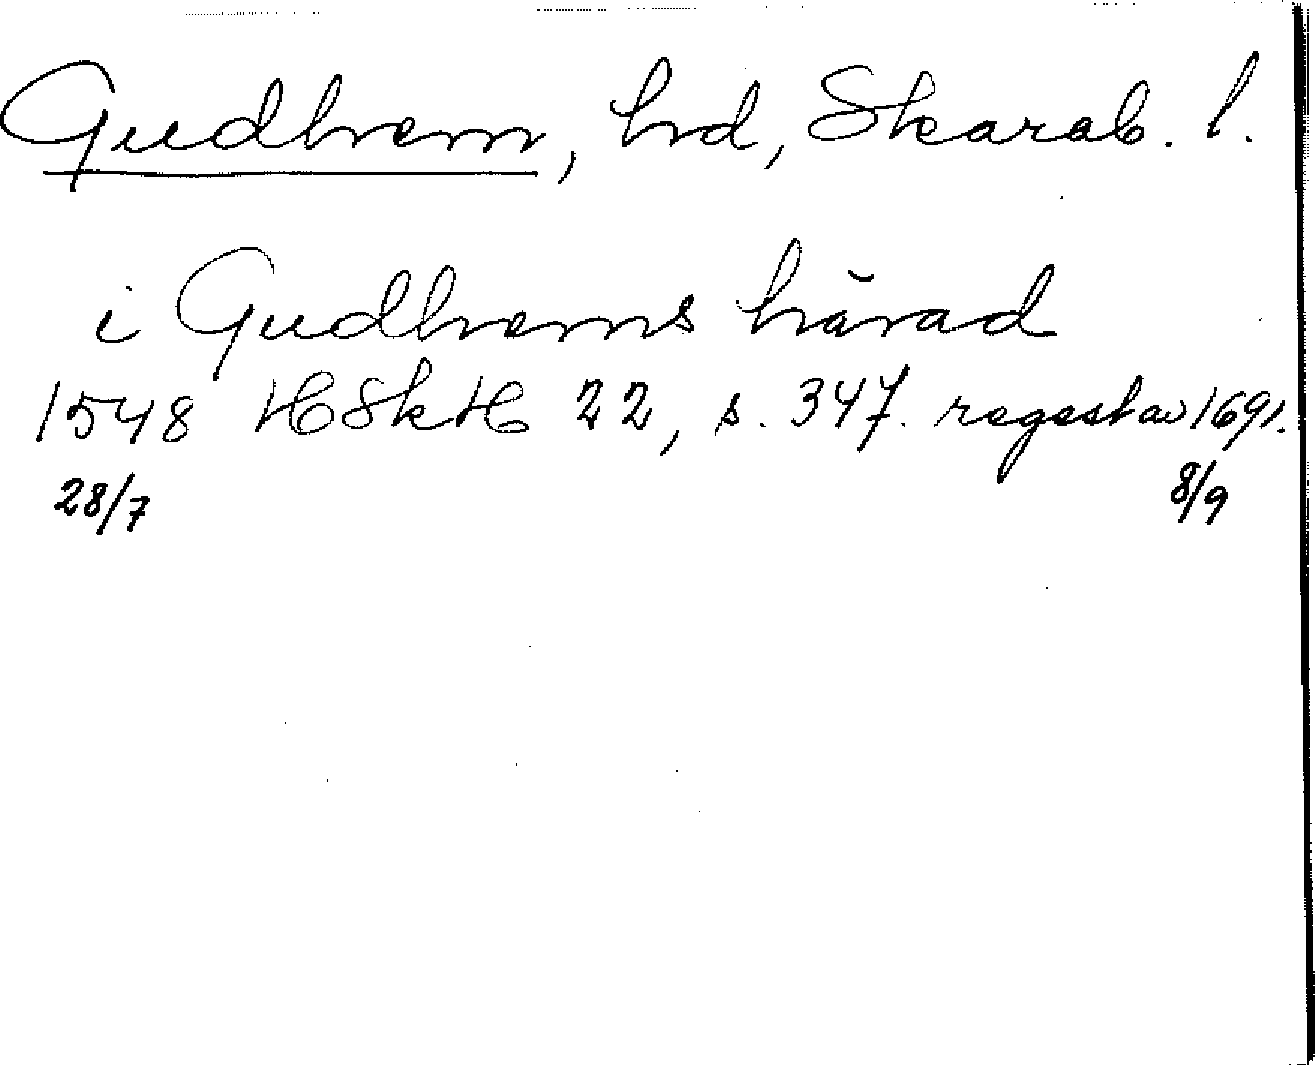 Gudhem, hd, Skarab. l.
i Gudhems härad
1548 HSkH 22, s. 347. regest av 1691.
28/7 8/9